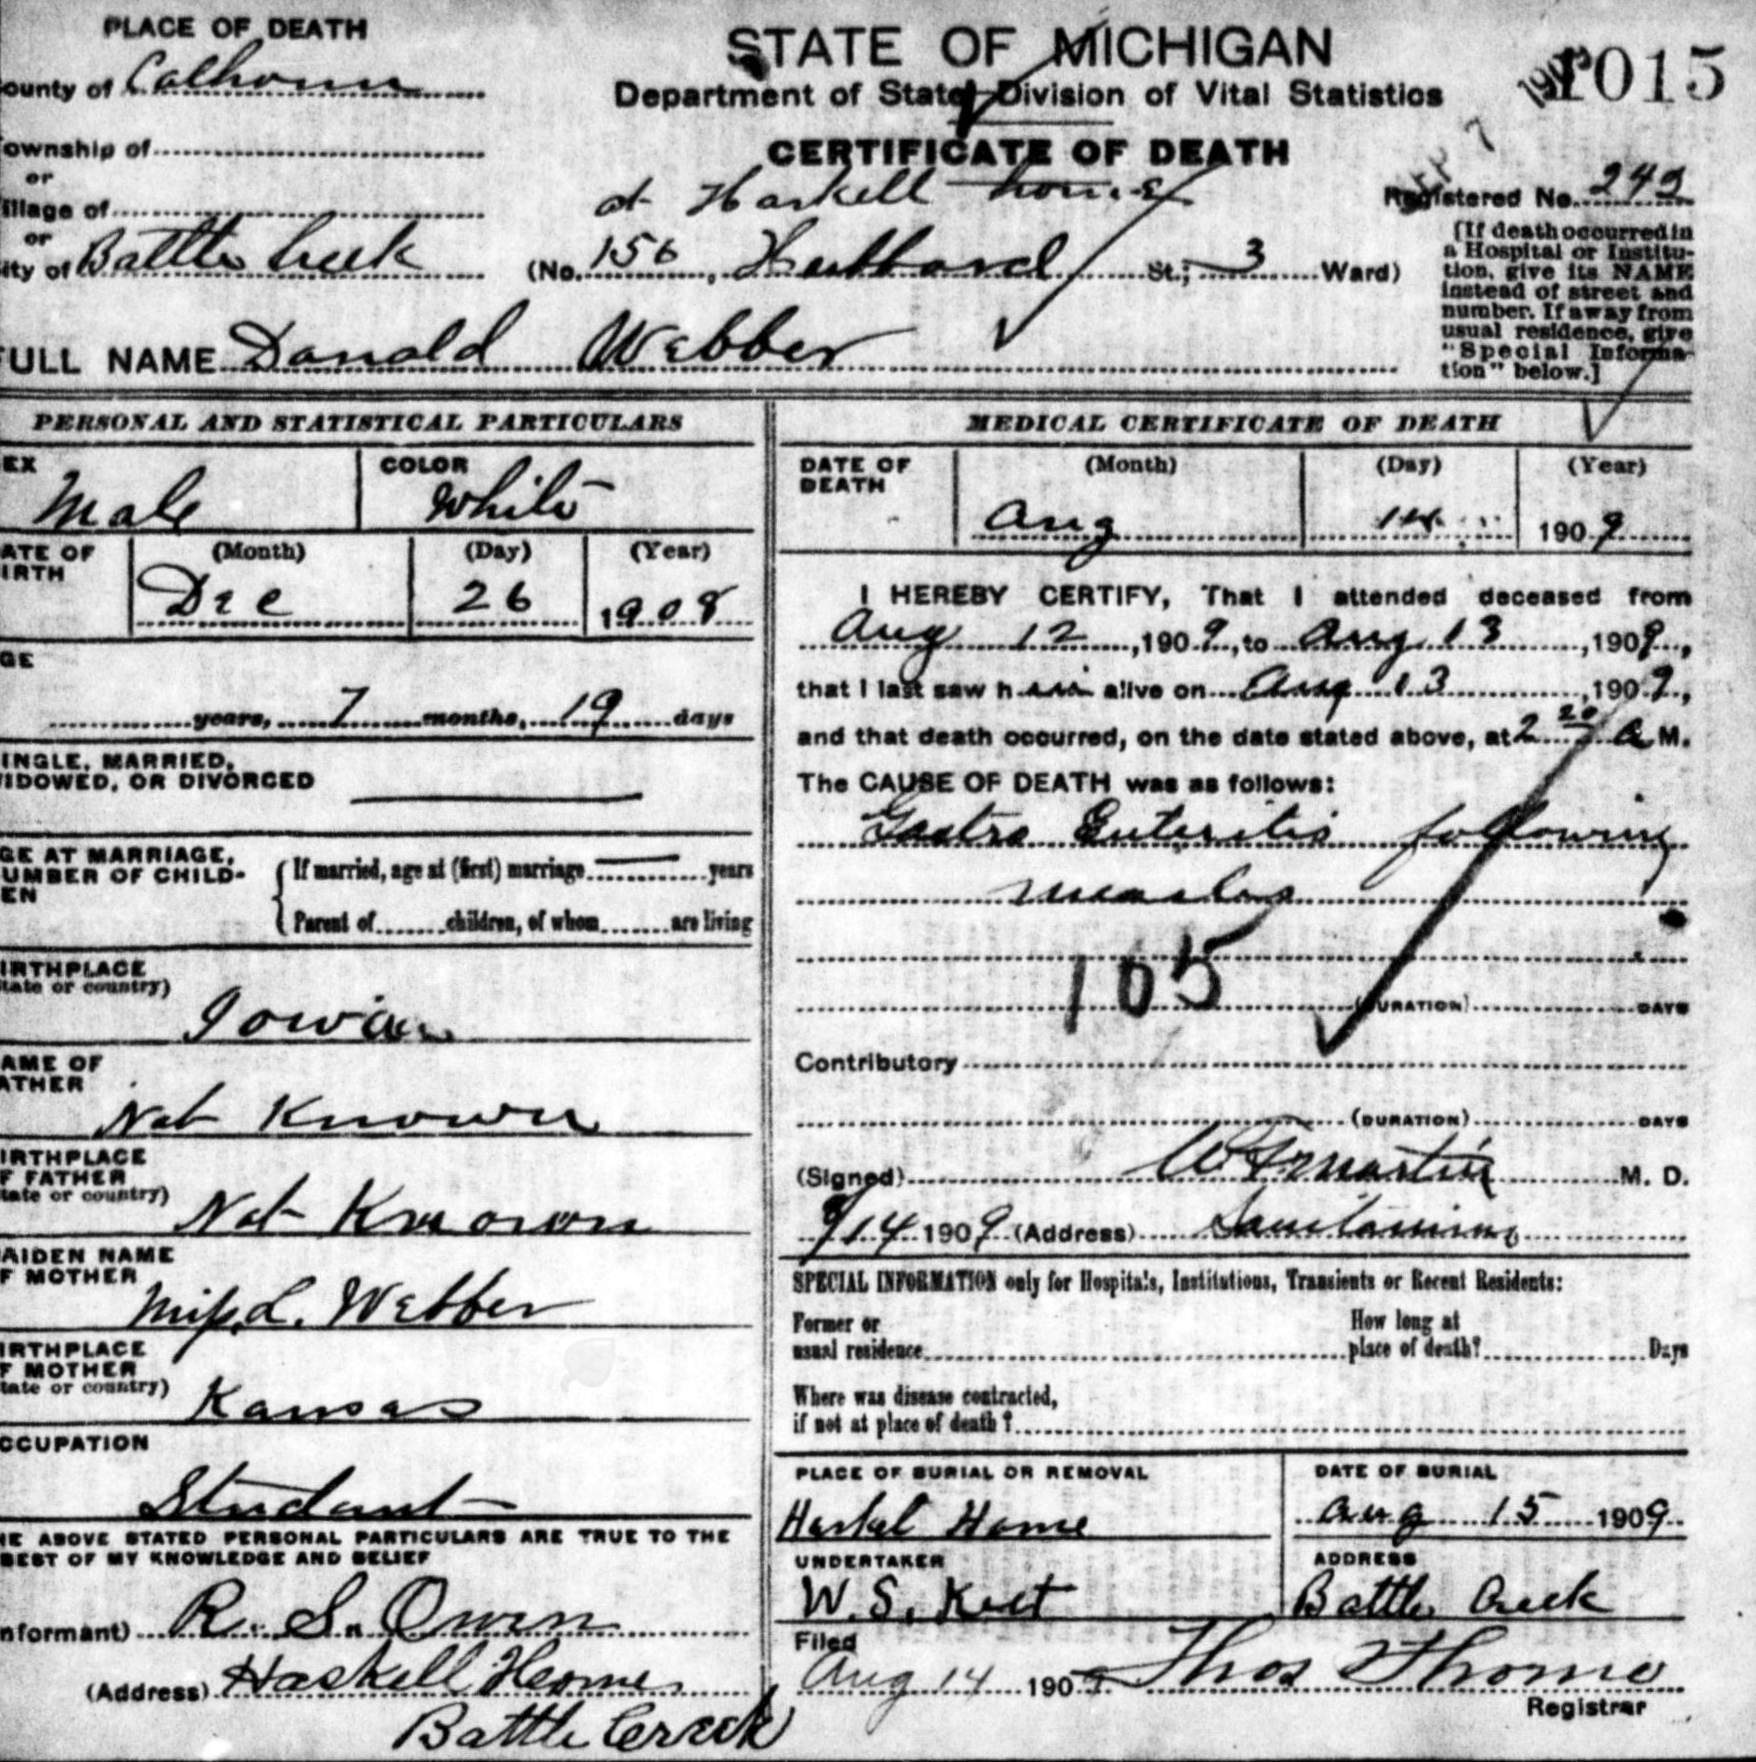 PLACE OF DEATH
ounty of Calhoun
ownship of
or
illage of
or
ity of Battle Creek
STATE OF MICHIGAN
Department of State Division of Vital Statistics
CERTIFICATE OF DEATH
at Haskell home
(No. 156, Hubbard St.; 3 Ward)
1015
Registered No. 243
[If death occurred in
a Hospital or Institu-
tion, give its NAME
instead of street and
number. If away from
usual residence, give
"Special Informa-
tion" below.]
FULL NAME Donald Webber
PERSONAL AND STATISTICAL PARTICULARS
EX Male
COLOR White
ATE OF
IRTH
(Month) (Day) (Year)
Dec 26 1908
GE
years, 7 months, 19 days
INGLE, MARRIED,
IDOWED, OR DIVORCED
GE AT MARRIAGE,
UMBER OF CHILD-
EN
If married, age at (first) marriage years
Parent of children, of whom are living
IRTHPLACE
tate or country)
Iowa
AME OF
ATHER
Not Known
IRTHPLACE
F FATHER
tate or country)
Not Known
AIDEN NAME
F MOTHER
Miss L. Webber
IRTHPLACE
F MOTHER
tate or country)
Kansas
CCUPATION
Student
HE ABOVE STATED PERSONAL PARTICULARS ARE TRUE TO THE
BEST OF MY KNOWLEDGE AND BELIEF
nformant) R. S. Owen
(Address) Haskell Home
Battle Creek
MEDICAL CERTIFICATE OF DEATH
DATE OF
DEATH
(Month) (Day) (Year)
Aug 14 1909
I HEREBY CERTIFY, That I attended deceased from
Aug 12, 1909, to Aug 13, 1909,
that I last saw him alive on Aug 13, 1909,
and that death occurred, on the date stated above, at 2 20 a M.
The CAUSE OF DEATH was as follows:
Gastro Enteritis following
measles
105
(DURATION) DAYS
Contributory
(DURATION) DAYS
(Signed) Martin M. D.
14 1909 (Address) Sanitarium
SPECIAL INFORMATION only for Hospitals, Institutions, Transients or Recent Residents:
Former or
usual residence
How long at
place of death? Days
Where was disease contracted,
if not at place of death?
PLACE OF BURIAL OR REMOVAL
Haskel Home
DATE OF BURIAL
Aug 15 1909
UNDERTAKER
W. S. Keet
ADDRESS
Battle Creek
Filed
Aug 14 1909 Thos Thorne
Registrar